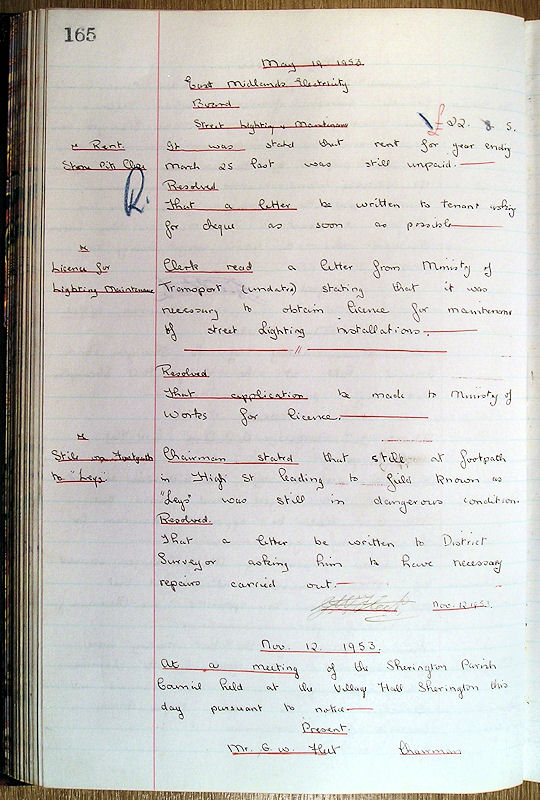 165
May 19 1953
East Midlands Electricity
Board
Street Lighting & Maintenance
£22. 5.
Rent.
Stone Pit Close
It was stated that rent for year ending
March 25 last was still unpaid.
R.
Resolved
That a letter be written to tenant asking
for cheque as soon as possible
Licence for
Lighting Maintenance
Clerk read a letter from Ministry of
Transport (undated) stating that it was
necessary to obtain licence for maintenance
of street lighting installations.
Resolved
That application be made to Ministry of
Works for licence.
Stile on Footpath
to "Leys"
Chairman stated that stile at footpath
in High St leading to field known as
"Leys" was still in dangerous condition.
Resolved.
That a letter be written to District
Surveyor asking him to have necessary
repairs carried out.
Nov. 12. 53
Nov. 12. 1953.
At a meeting of the Sherington Parish
Council held at the Village Hall Sherington this
day pursuant to notice
Present.
Mr. G. W. Fleet Chairman